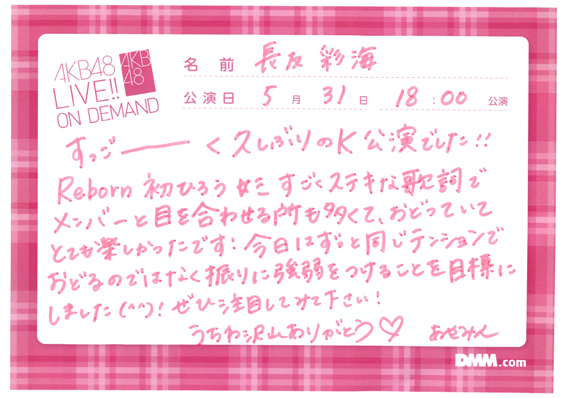 AKB48
LIVE!!
ON DEMAND
AKB
48
名前 長友 彩海
公演日 5月 31日 18:00 公演
すっごーーく久しぶりのK公演でした!!
Reborn 初ひろう すごくステキな歌詞で
メンバーと目を合わせる所も多くて、おどっていて
とても楽しかったです! 今日はずっと同じテンションで
おどるのではなく振りに強弱をつけることを目標に
しました(^^)! ぜひ注目してみて下さい!
うちわ沢山ありがとう♡ あやみん
DMM.com